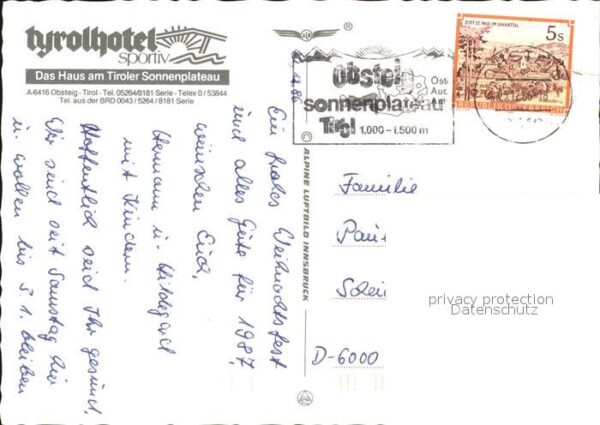 tyrolhotel
sportiv
Das Haus am Tiroler Sonnenplateau
A-6416 Obsteig - Tirol - Tel. 05264/8181 Serie - Telex 0 / 53844
Tel. aus der BRD 0043 / 5264 / 8181 Serie
Ein frohes Weihnachtsfest
und alles Gute für 1987,
wünschen Euch,
Hermann u. Hildegard
mit Kindern.
Hoffentlich seid Ihr gesund,
Wir sind seit Samstag hier
u. wollen bis 3.1. bleiben
ALPINE LUFTBILD INNSBRUCK
®
86
obsteig
sonnenplateau
Tirol 1.000 – 1.500 m
STIFT ST. PAUL IM LAVANTTAL
5s
REPUBLIK ÖSTERREICH
Familie
D-6000
privacy protection
Datenschutz